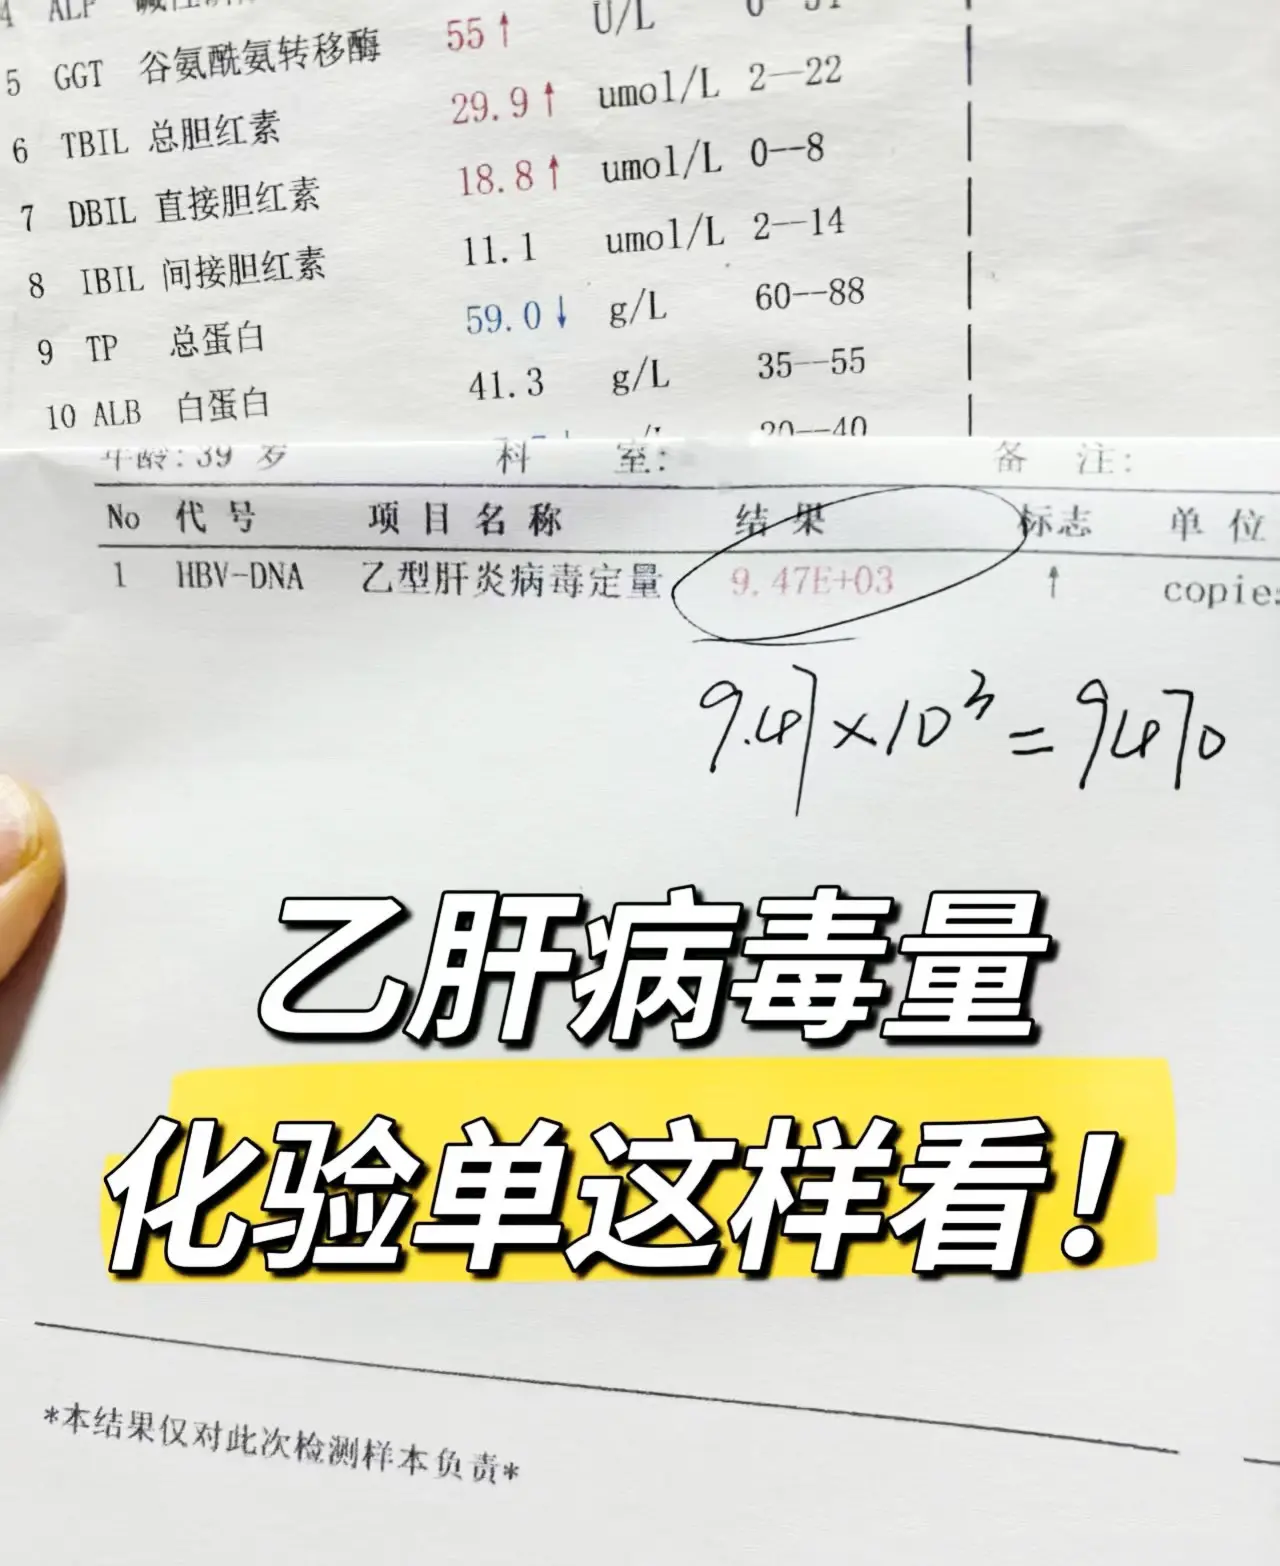 4 ALP
5 GGT 谷氨酰氨转移酶 55↑ U/L
6 TBIL 总胆红素 29.9↑ umol/L 2--22
7 DBIL 直接胆红素 18.8↑ umol/L 0--8
8 IBIL 间接胆红素 11.1 umol/L 2--14
9 TP 总蛋白 59.0↓ g/L 60--88
10 ALB 白蛋白 41.3 g/L 35--55
20--40
年龄: 39 岁 科 室: 备 注:
No 代号 项目名称 结果 标志 单位
1 HBV-DNA 乙型肝炎病毒定量 9.47E+03 ↑ copies
9.47×10³=9470
乙肝病毒量
化验单这样看!
*本结果仅对此次检测样本负责*